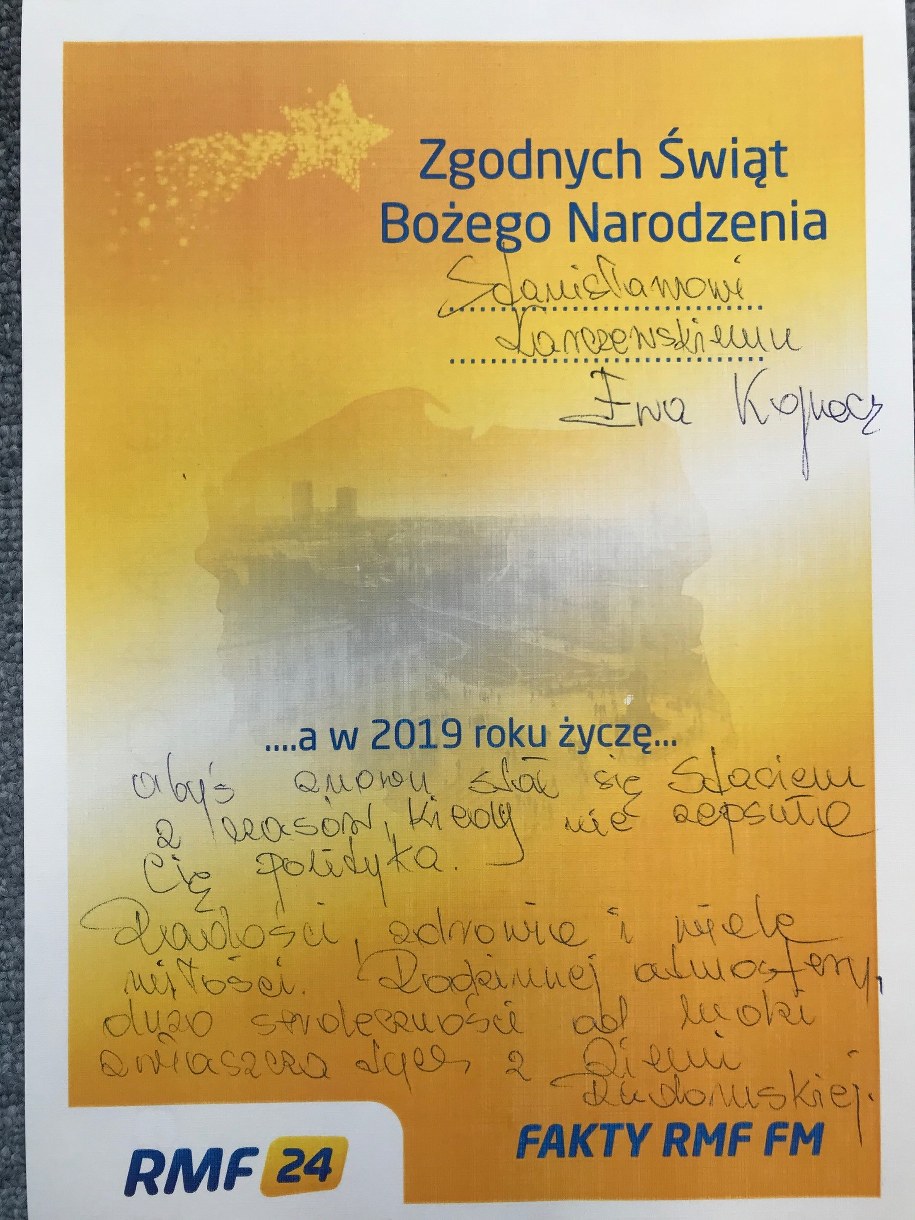 Zgodnych Świąt
Bożego Narodzenia
Stanisławowi
Karczewskiemu
Ewa Kopacz
....a w 2019 roku życzę...
abyś znowu stał się Staciem
z czasów, kiedy nie zepsuła
Cię polityka.
Radości, zdrowia i wiele
miłości. Rodzinnej atmosfery,
dużo serdeczności od ludzi
zwłaszcza tych z Ziemi
Radomskiej.
FAKTY RMF FM
RMF 24